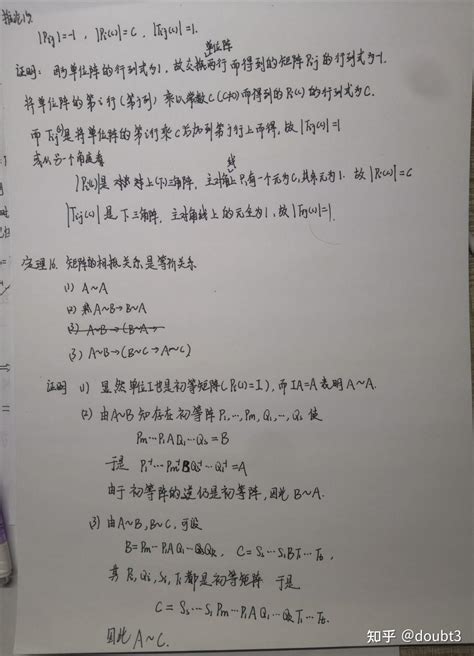 推论15
|Pij|=-1, |Pi(c)|=C, |Tij(c)|=1.
单位阵
证明: 因为单位阵的行列式为1, 故交换两行而得到的矩阵Pij的行列式为-1.
将单位阵的第i行(第i列)乘以常数C(C≠0)而得到的Pi(c)的行列式为C.
而Tij(c)是将单位阵的第i行乘C后加到第j行上而得, 故|Tij(c)|=1
或从另一个角度看
线
|Pi(c)|是 上(下)三角阵, 主对角上只有一个元为C, 其余元为1. 故|Pi(c)|=C
|Tij(c)|是下三角阵, 主对角线上的元全为1, 故|Tij(c)|=1.
定理16. 矩阵的相抵关系是等价关系
(1) A~A
(2) A~B→B~A
(3) A~B→(B~A→
(3) A~B→(B~C→A~C)
证明 (1) 显然单位I也是初等矩阵(Pi(1)=I), 而IA=A表明A~A.
(2) 由A~B知存在初等阵P₁,…,Pm, Q₁,…,Qs 使
Pm…P₁AQ₁…Qs=B
于是 P₁⁻¹…Pm⁻¹BQs⁻¹…Q₁⁻¹=A
由于初等阵的逆仍是初等阵, 因此B~A.
(3) 由A~B, B~C, 可设
B=Pm…P₁AQ₁…Qk, C=Ss…S₁BT₁…Tt,
其Pi, Qi, Si, Ti都是初等矩阵 于是
C=Ss…S₁Pm…P₁AQ₁…QkT₁…Tt.
因此A~C.
知乎 @doubt3